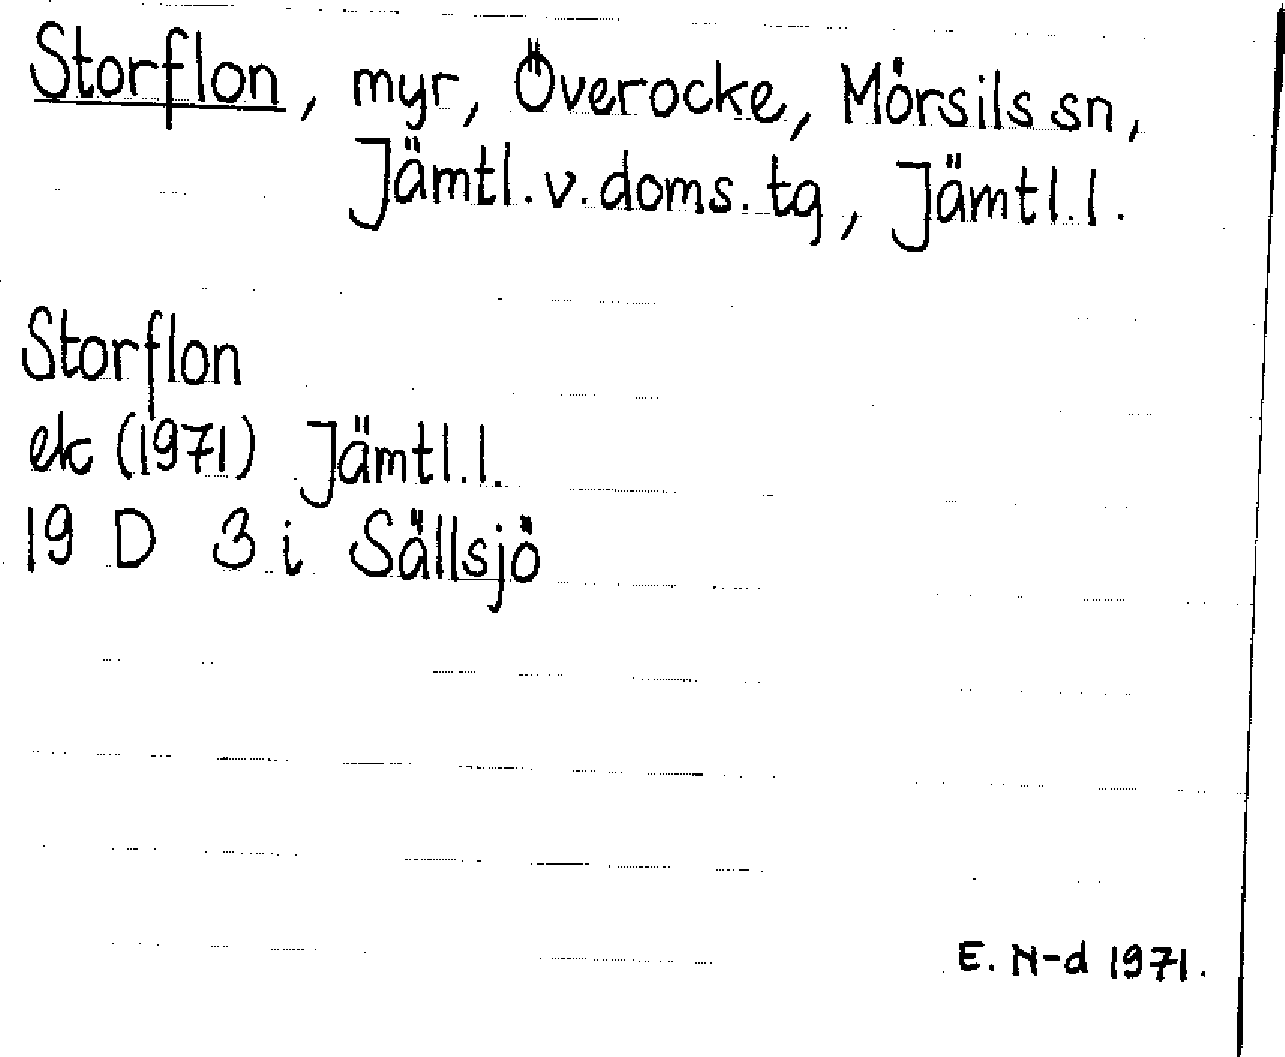 Storflon, myr, Överocke, Mörsils sn,
Jämtl. v. doms. tg, Jämtl. l.
Storflon
ek (1971) Jämtl. l.
19 D 3 i Sällsjö
E. N-d 1971.